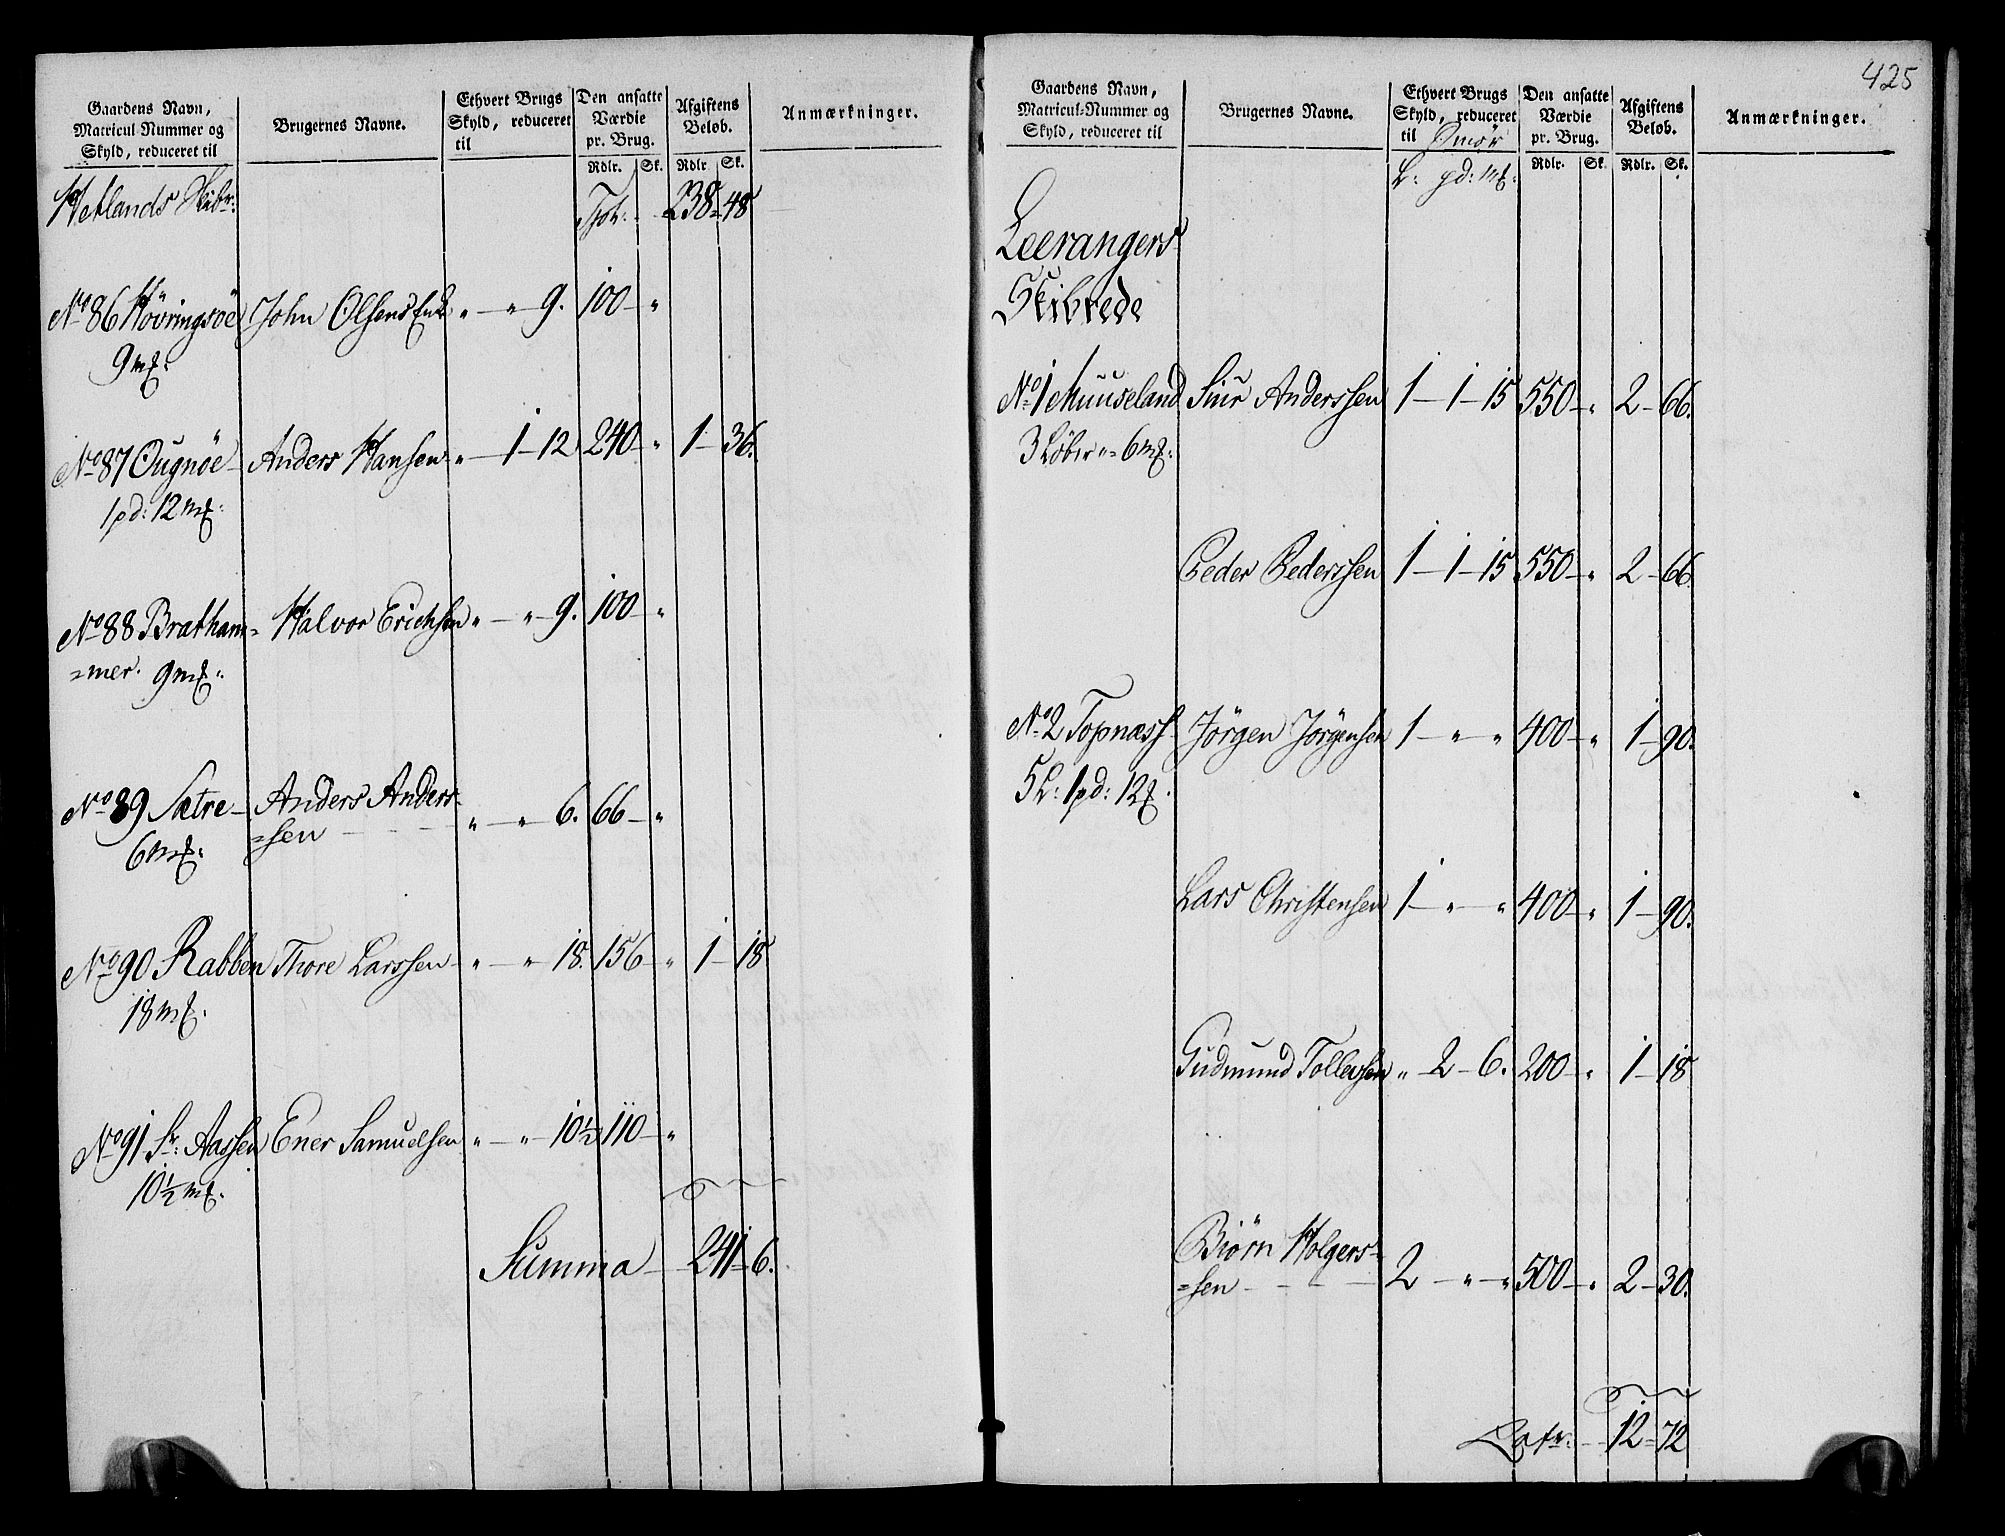 Gaardens Navn,
Matricul Nummer og
Skyld, reduceret til
Brugernes Navne.
Ethvert Brugs
Skyld, reduceret
til
Den ansatte
Værdie
pr. Brug.
Rdlr. Sk.
Afgiftens
Beløb.
Rdlr Sk.
Anmærkninger.
Hetlands Skibr: 238 = 48
No 86 Høvringsöe John Olsens Enk " — " 9. 100 — "
9 mk:
No 87 Ougnöe — Anders Hansen " — 1 — 12 240 — " 1 — 36.
1 pd: 12 mk:
No 88 Bratham= Halvor Erichsen " — " — 9. 100 — "
=mer. 9 mk:
No 89 Sætre — Anders Anders=
=sen " — " 6. 66 — "
6 mk:
No 90 Rabben Thore Larssen — " — " 18. 156 — " 1 — 18
18 mk.
No 91 Sr: Aassen Ener Samuelsen " — " — 10½ 110 — "
10½ mk.
Summa — 241 = 6.
425
Gaardens Navn,
Matricul-Nummer og
Skyld, reduceret til
Brugernes Navne.
Ethvert Brugs
Skyld, reduceret
til Smör
L: pd: mk:
Den ansatte
Værdie
pr. Brug.
Rdlr. Sk.
Afgiftens
Beløb.
Rdlr. Sk.
Anmærkninger.
Leerangers
Skibrede
No 1 Muuseland Siur Anderssen 1 — 1 — 15 550 — " 2 — 66.
3 Løber " = 6 mk:
Peder Pederssen 1 — 1 — 15 550 — " 2 — 66
No 2 Topnæss Jörgen Jörgensen 1 — " — " 400 — " 1 — 90.
5 L: 1 pd: 12 .
Lars Christensen 1 — " — " 400 — " 1 — 90.
Gudmund Tollevsen " 2 — 6. 200 — " 1 — 18
Biörn Holgers=
=sen 2 — " — " 500 — " 2 — 30.
Latr: 12 = 72